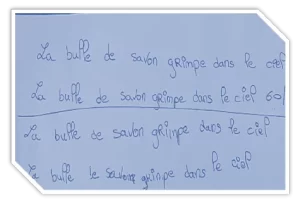 La bulle de savon grimpe dans le ciel
La bulle de savon grimpe dans le ciel 60!
La bulle de savon griimpe dans le ciel
la bulle le savon griinpe dans le ciel